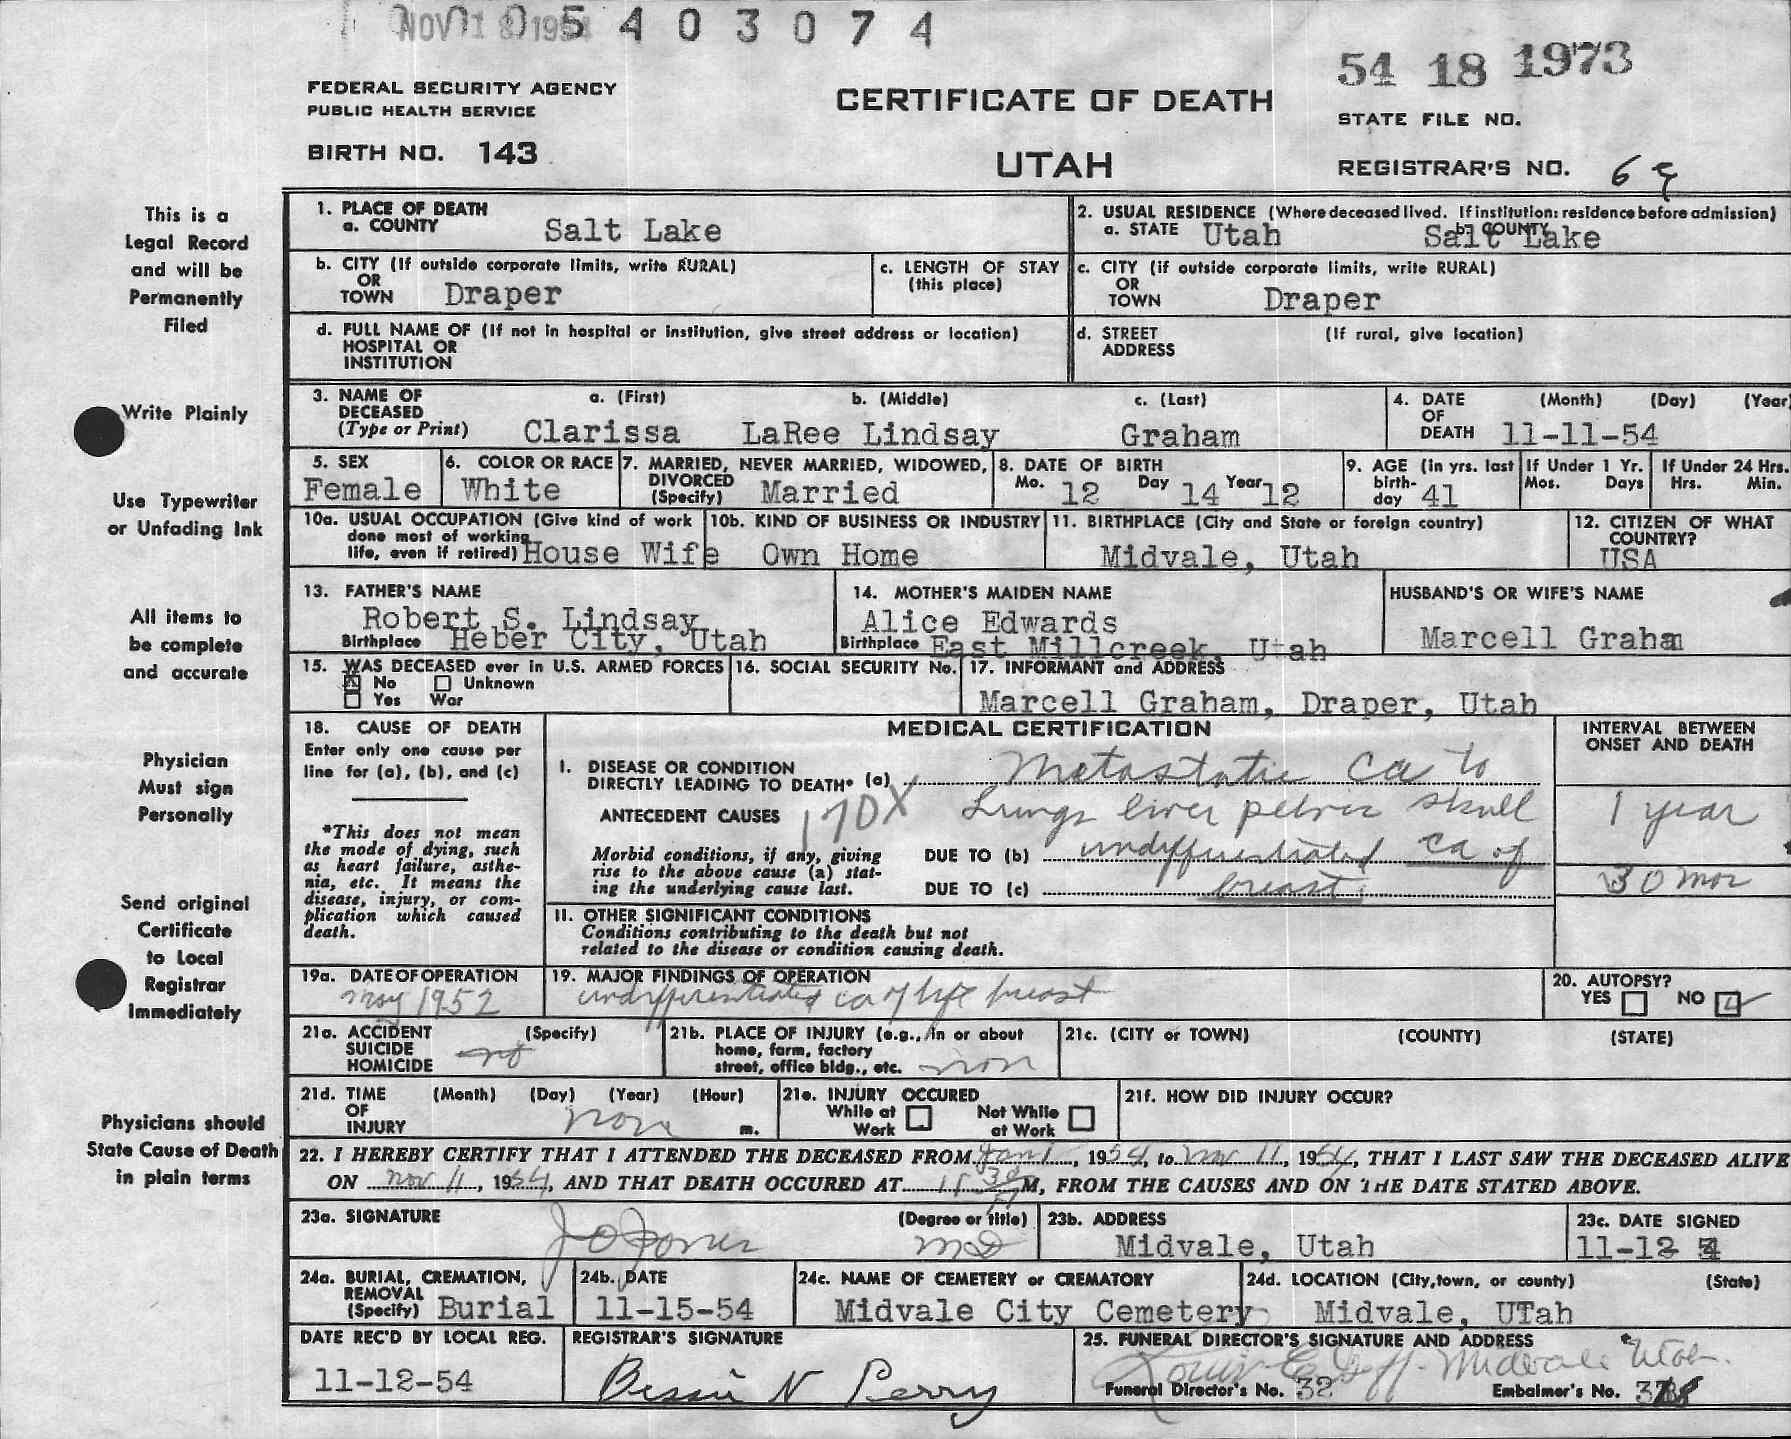 NOV 18 1954 5 4 0 3 0 7 4
54 18 1973
FEDERAL SECURITY AGENCY
PUBLIC HEALTH SERVICE
CERTIFICATE OF DEATH
STATE FILE NO.
BIRTH NO. 143
UTAH
REGISTRAR'S NO. 69
This is a
Legal Record
and will be
Permanently
Filed
Write Plainly
Use Typewriter
or Unfading Ink
All items to
be complete
and accurate
Physician
Must sign
Personally
Send original
Certificate
to Local
Registrar
Immediately
Physicians should
State Cause of Death
in plain terms
1. PLACE OF DEATH
a. COUNTY Salt Lake
2. USUAL RESIDENCE (Where deceased lived. If institution: residence before admission)
a. STATE Utah b. COUNTY Salt Lake
b. CITY (If outside corporate limits, write RURAL)
OR
TOWN Draper
c. LENGTH OF STAY
(this place)
c. CITY (if outside corporate limits, write RURAL)
OR
TOWN Draper
d. FULL NAME OF (If not in hospital or institution, give street address or location)
HOSPITAL OR
INSTITUTION
d. STREET (If rural, give location)
ADDRESS
3. NAME OF a. (First) b. (Middle) c. (Last)
DECEASED
(Type or Print) Clarissa LaRee Lindsay Graham
4. DATE (Month) (Day) (Year)
OF
DEATH 11-11-54
5. SEX
Female
6. COLOR OR RACE
White
7. MARRIED, NEVER MARRIED, WIDOWED,
DIVORCED
(Specify) Married
8. DATE OF BIRTH
Mo. 12 Day 14 Year 12
9. AGE (in yrs. last
birth-
day 41
If Under 1 Yr.
Mos. Days
If Under 24 Hrs.
Hrs. Min.
10a. USUAL OCCUPATION (Give kind of work
done most of working
life, even if retired) House Wife
10b. KIND OF BUSINESS OR INDUSTRY
Own Home
11. BIRTHPLACE (City and State or foreign country)
Midvale, Utah
12. CITIZEN OF WHAT
COUNTRY?
USA
13. FATHER'S NAME
Robert S. Lindsay
Birthplace Heber City, Utah
14. MOTHER'S MAIDEN NAME
Alice Edwards
Birthplace East Millcreek, Utah
HUSBAND'S OR WIFE'S NAME
Marcell Graham
15. WAS DECEASED ever in U.S. ARMED FORCES
X No Unknown
Yes War
16. SOCIAL SECURITY No.
17. INFORMANT and ADDRESS
Marcell Graham, Draper, Utah
18. CAUSE OF DEATH
Enter only one cause per
line for (a), (b), and (c)
*This does not mean
the mode of dying, such
as heart failure, asthe-
nia, etc. It means the
disease, injury, or com-
plication which caused
death.
MEDICAL CERTIFICATION
INTERVAL BETWEEN
ONSET AND DEATH
I. DISEASE OR CONDITION
DIRECTLY LEADING TO DEATH* (a) Metastatic Ca to
ANTECEDENT CAUSES 170X Lungs liver pelvis skull 1 year
Morbid conditions, if any, giving
rise to the above cause (a) stat-
ing the underlying cause last.
DUE TO (b) undifferentiated ca of
DUE TO (c) breast. 30 mos
II. OTHER SIGNIFICANT CONDITIONS
Conditions contributing to the death but not
related to the disease or condition causing death.
19a. DATE OF OPERATION
May 1952
19. MAJOR FINDINGS OF OPERATION
undifferentiated ca of left breast
20. AUTOPSY?
YES NO
21a. ACCIDENT (Specify)
SUICIDE
HOMICIDE no
21b. PLACE OF INJURY (e.g., in or about
home, farm, factory
street, office bldg., etc. non
21c. (CITY or TOWN) (COUNTY) (STATE)
21d. TIME (Month) (Day) (Year) (Hour)
OF
INJURY non m.
21e. INJURY OCCURED
While at Work Not While at Work
21f. HOW DID INJURY OCCUR?
22. I HEREBY CERTIFY THAT I ATTENDED THE DECEASED FROM Jan 1, 1954, to Nov 11, 1954, THAT I LAST SAW THE DECEASED ALIVE
ON Nov 11, 1954, AND THAT DEATH OCCURED AT 11 30 M, FROM THE CAUSES AND ON THE DATE STATED ABOVE.
23a. SIGNATURE (Degree or title)
J O Jones MD
23b. ADDRESS
Midvale, Utah
23c. DATE SIGNED
11-12 4
24a. BURIAL, CREMATION,
REMOVAL
(Specify) Burial
24b. DATE
11-15-54
24c. NAME OF CEMETERY or CREMATORY
Midvale City Cemetery
24d. LOCATION (City, town, or county) (State)
Midvale, UTah
DATE REC'D BY LOCAL REG.
11-12-54
REGISTRAR'S SIGNATURE
Bessie N Perry
25. FUNERAL DIRECTOR'S SIGNATURE AND ADDRESS
Louis E. Goff. Midvale Utah.
Funeral Director's No. 32 Embalmer's No.